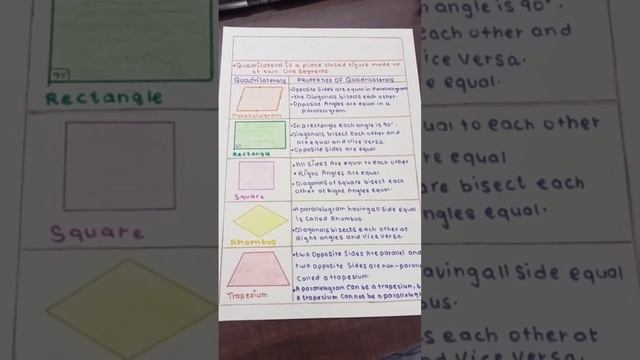 • Quadrilateral is a plane closed figure made up
of two line segments.
Quadrilaterals
PROPERTIES OF Quadrilaterals
Parallelogram
• Opposite Sides are equal in Parallelogram
• the Diagonals bisects each other.
• Opposite Angles are equal in a
Parallelogram
90°
Rectangle
• In a rectangle each angle is 90°.
• Diagonals bisect each other and
are equal and vice versa.
• Opposite sides are equal
Square
• All Sides Are equal to each other
• Right Angles are equal
• Diagonals of square bisect each
other at Right Angles equal.
Rhombus
• A parallelogram having all side equal
is Called Rhombus.
• Diagonals bisects each other at
Right angles and Vice Versa.
Trapezium
• two Opposite Sides Are parallel and
two Opposite sides are non-para
Called a trapezium.
• A parallelogram Can be a trapezium, b
a trapezium Can not be a parallelog
90°
Rectangle
Square
ngle is 90°.
each other and
vice versa.
e equal.
ual to each other
re equal
are bisect each
ngles equal.
aving all side equal
bus.
s each other at